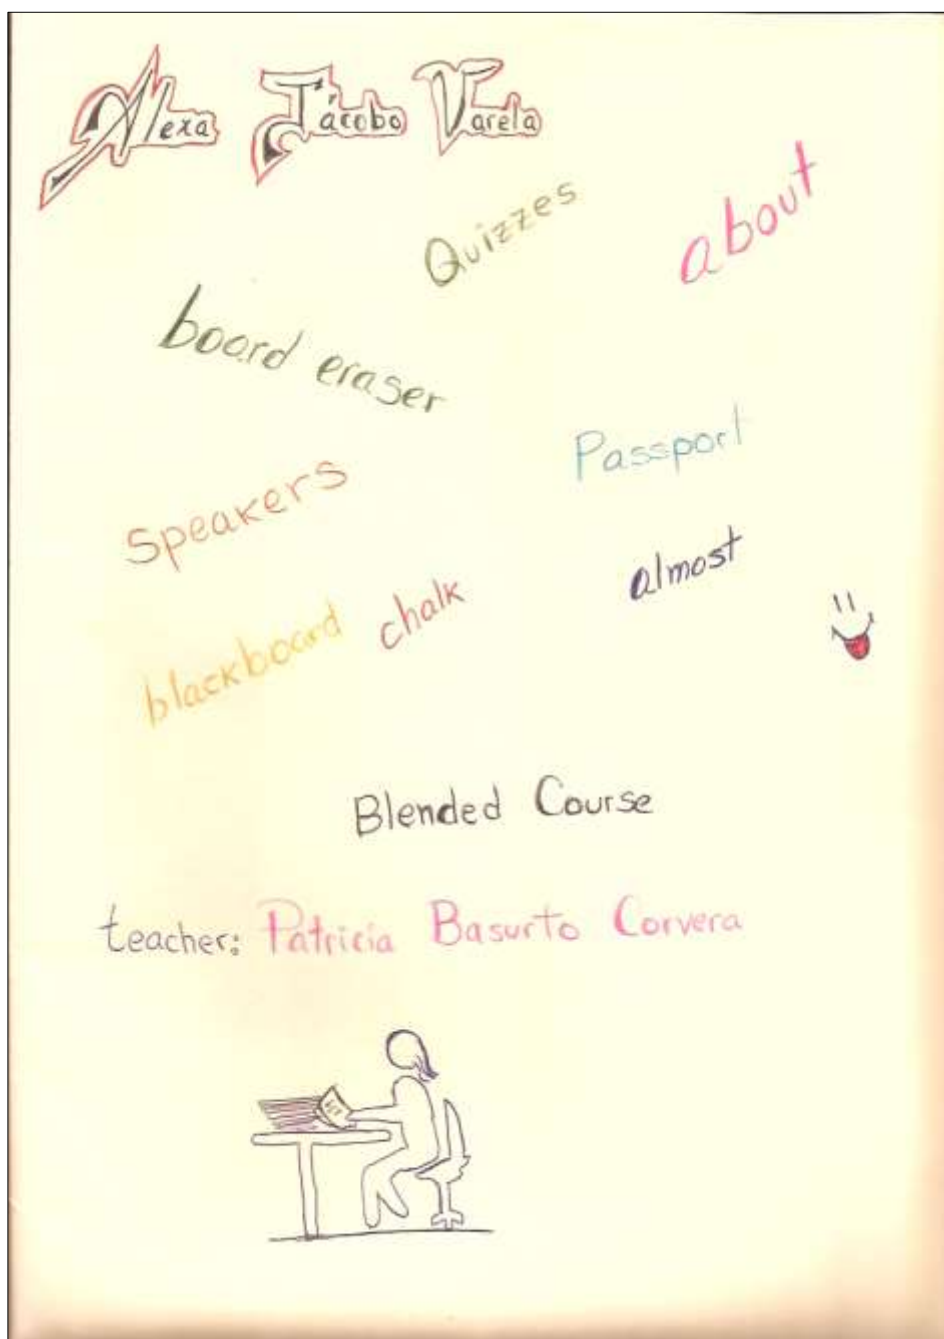 Alexa Jácobo Varela
Quizzes
about
board eraser
Passport
Speakers
almost
chalk
blackboard
Blended Course
teacher: Patricia Basurto Corvera